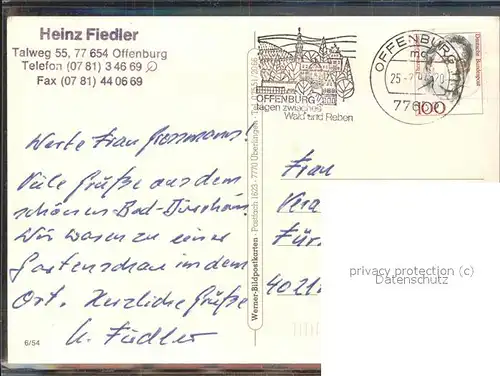 Heinz Fiedler
Talweg 55, 77 654 Offenburg
Telefon (07 81) 3 46 69
Fax (07 81) 44 06 69
OFFENBURG
tagen zwischen
Wald und Reben
OFFENBURG
77600
100
Deutsche Bundespost
Werte Frau
Viele Grüße aus dem
schönen Bad-Dürrheim.
Wir waren zu einer
Gartenschau in dem
Ort. Herzliche Grüße
H. Fiedler
6/54
Werner-Bildpostkarten · Postfach 1623 · 7770 Überlingen
Frau
Vera
Für
4021
privacy protection (c)
Datenschutz